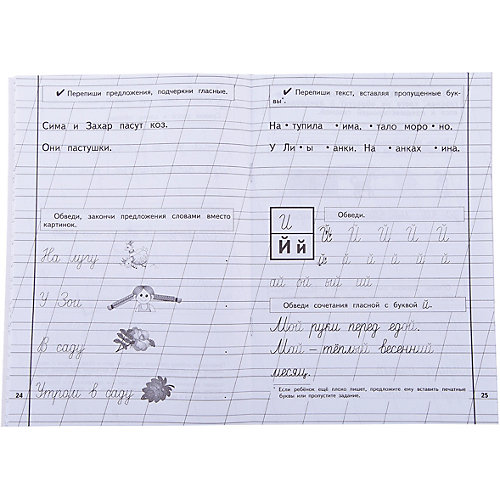 ✔ Перепиши предложения, подчеркни гласные.
Сима и Захар пасут коз.
Они пастушки.
Обведи, закончи предложения словами вместо
картинок.
На лугу
У Зои
В саду
Утром в саду
24
✔ Перепиши текст, вставляя пропущенные бук-
вы*.
На • тупила • има. • тало моро • но.
У Ли • ы • анки. На • анках • ина.
Й
Й й
Обведи.
Й Й Й Й Й
й й й й й й
ай ой ый ий
Обведи сочетания гласной с буквой й.
Мой руки перед едой.
Май – тёплый весенний
месяц.
* Если ребёнок ещё плохо пишет, предложите ему вставить печатные
буквы или пропустите задание.
25